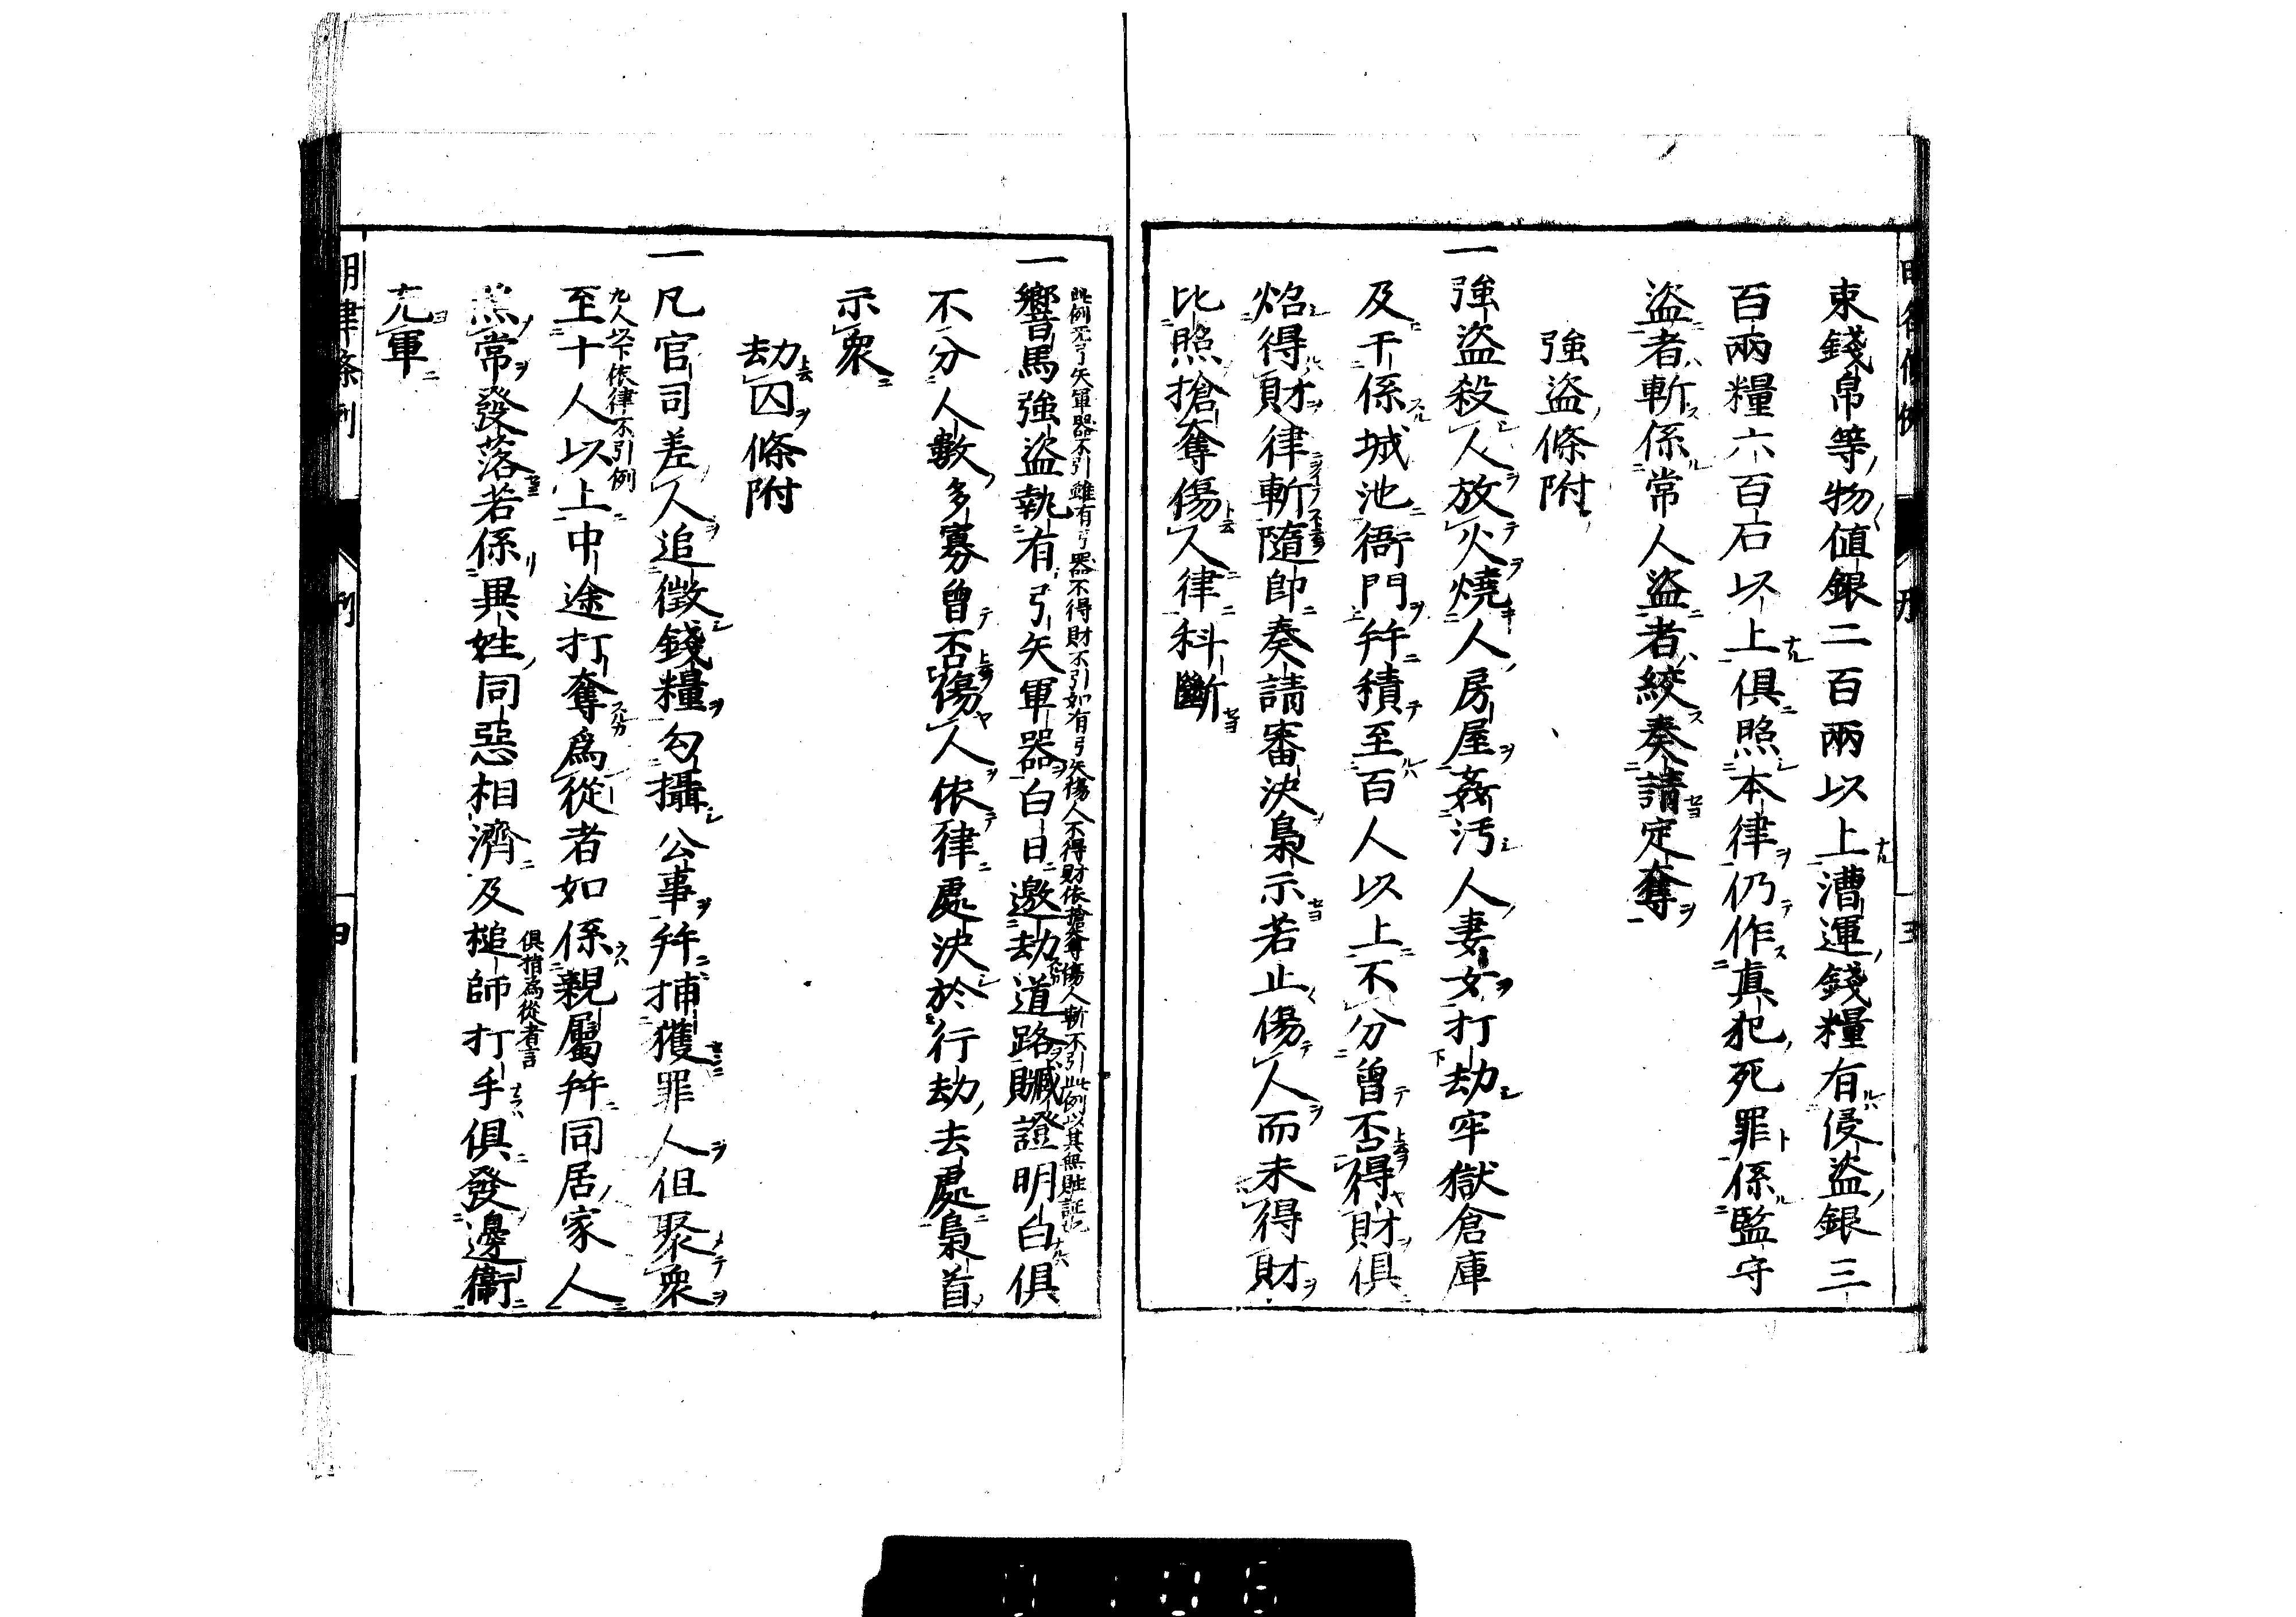 束錢帛等物値銀二百兩以上漕運錢糧有侵盜銀三
百兩糧六百石以上俱照本律仍作真犯死罪係監守
盜者斬係常人盜者絞奏請定奪
強盜條附
一強盜殺人放火燒人房屋姦汚人妻女打劫牢獄倉庫
及干係城池衙門幷積至百人以上不分曾否得財俱
照得財律斬隨即奏請審決梟示若止傷人而未得財
比照搶奪傷人律科斷
此例无弓矢軍器不引雖有弓器不得財不引如有弓矢傷人不得財依搶奪傷人斬不引此例以其無賍証也
一響馬強盜執有弓矢軍器白日邀劫道路贓證明白俱
不分人數多寡曾否傷人依律處決於行劫去處梟首
示衆
劫囚條附
一凡官司差人追徵錢糧勾攝公事幷捕獲罪人但聚衆
九人以下依律不引例
至十人以上中途打奪爲從者如係親屬幷同居家人
俱指為從者言
照常發落若係異姓同惡相濟及槌師打手俱發邊衛
充軍